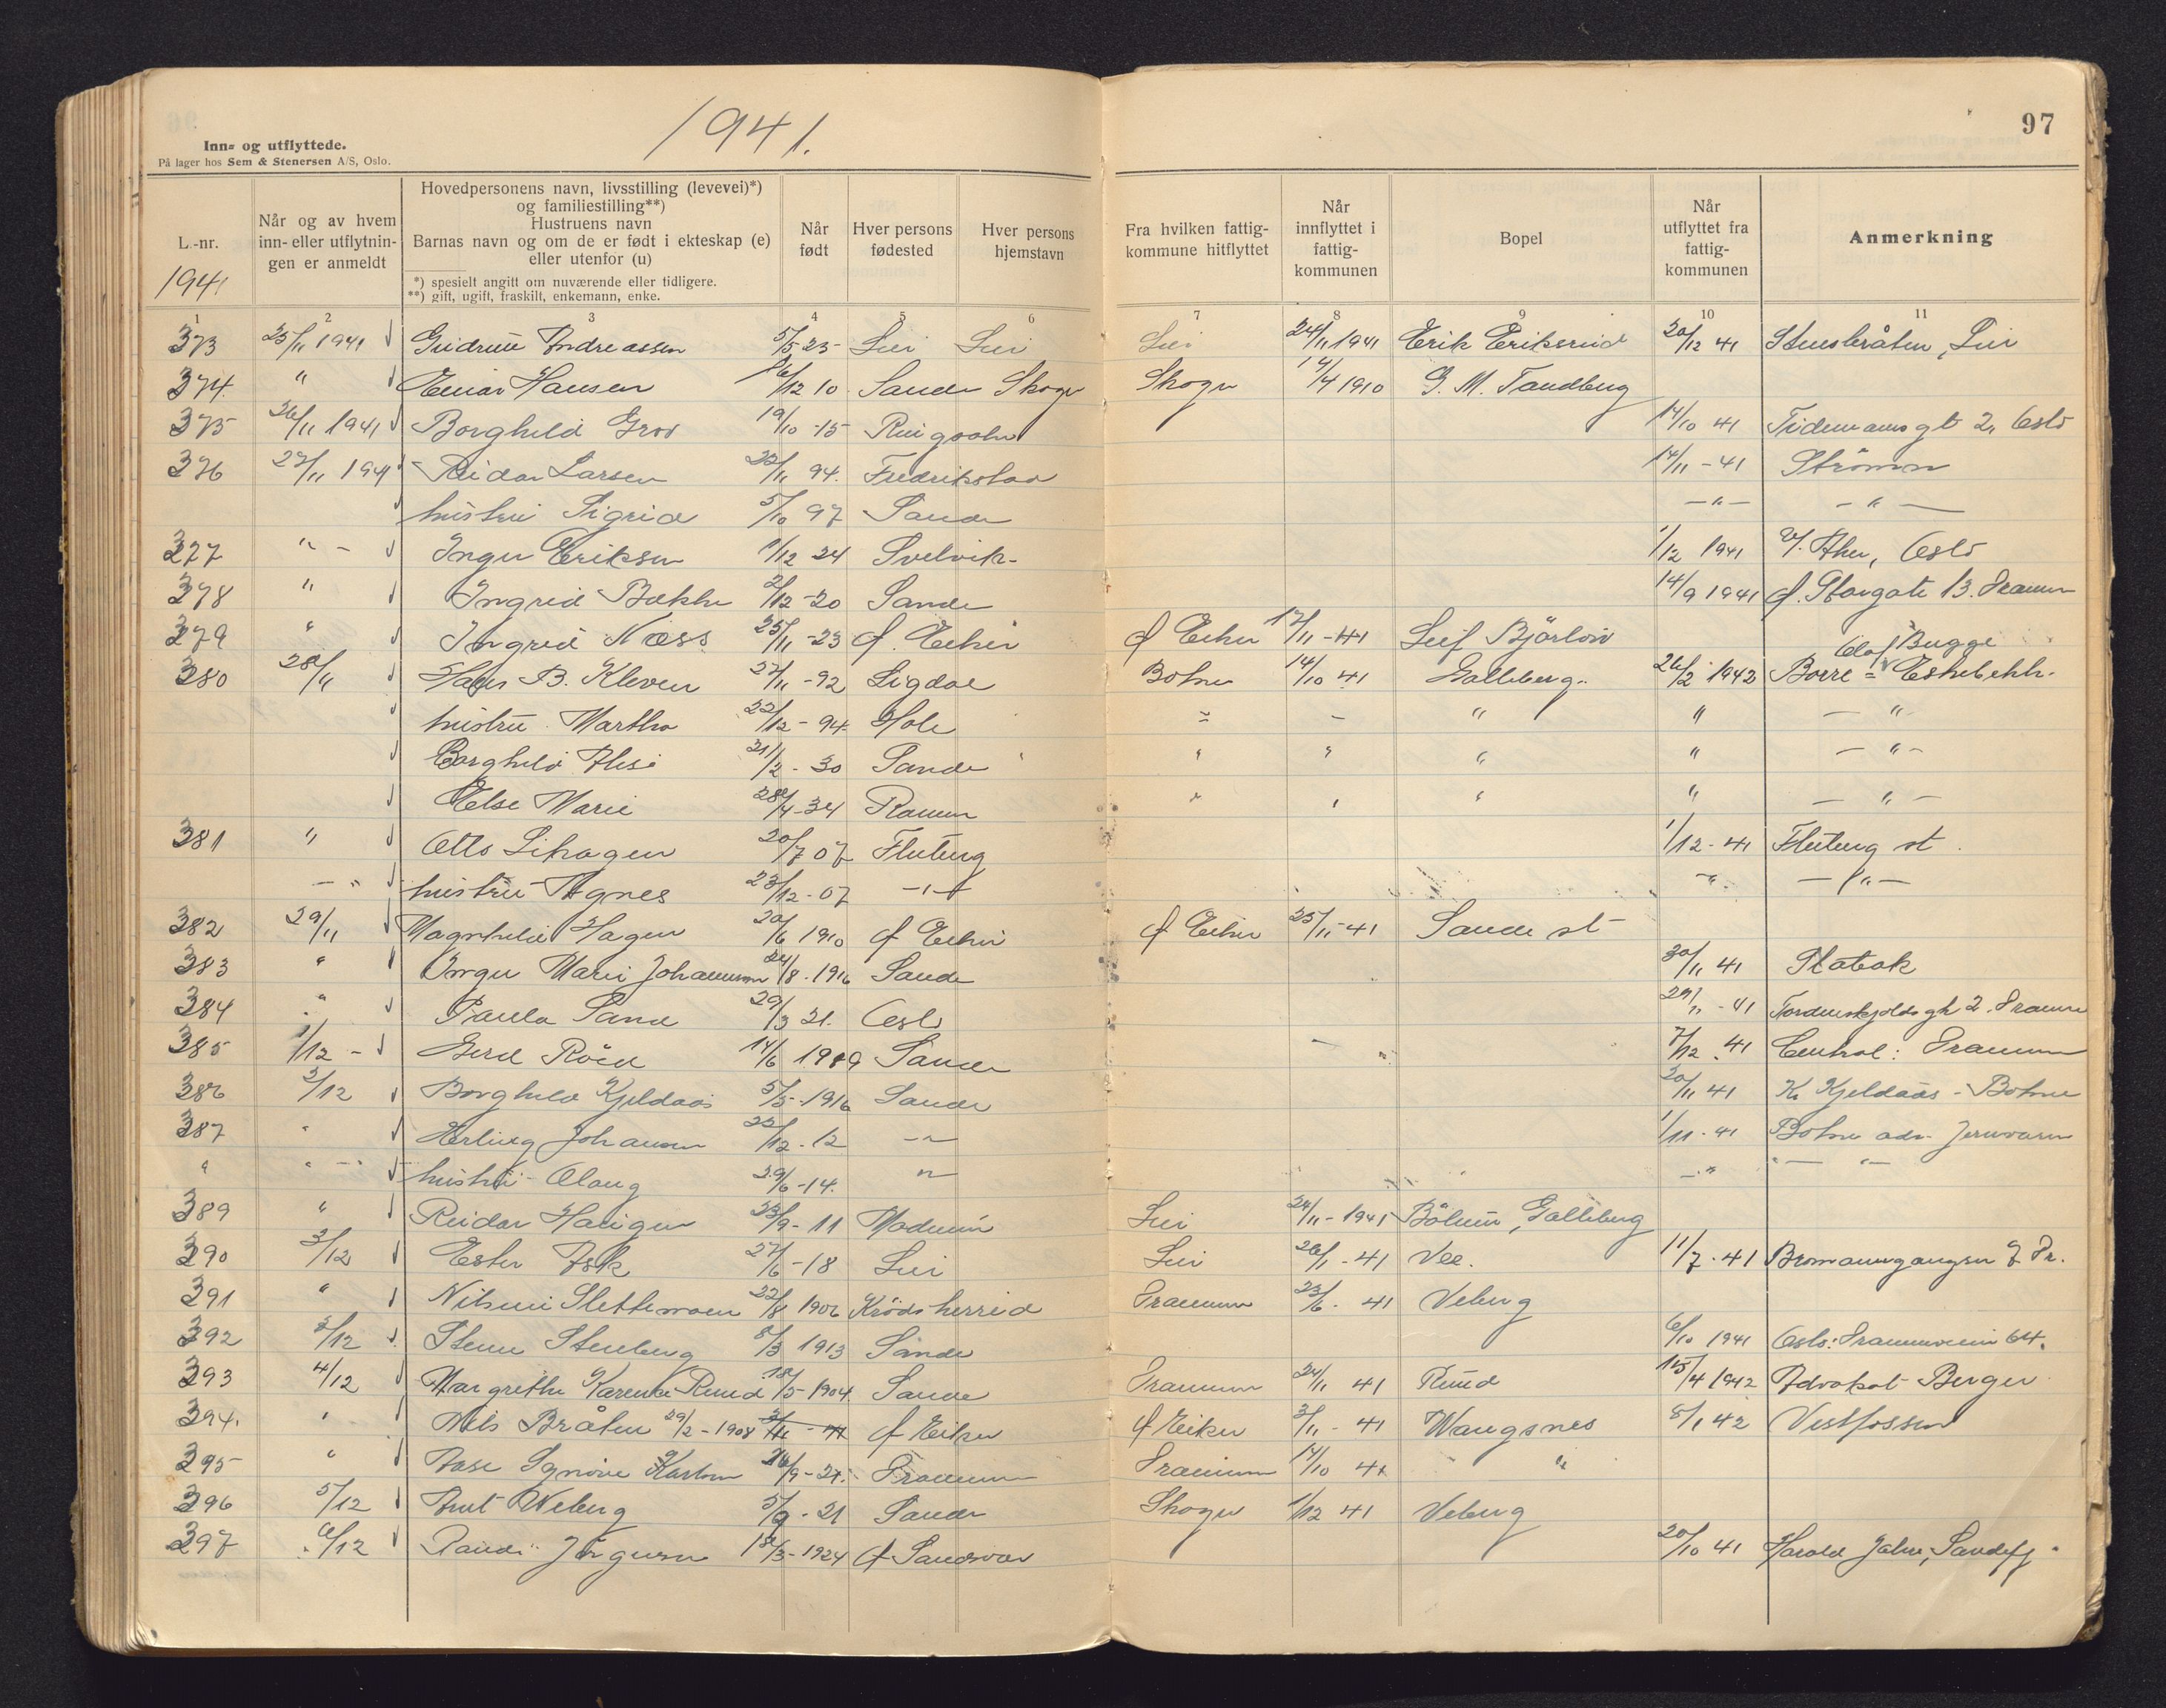 1941.
97
Inn- og utflyttede.
På lager hos Sem & Stenersen A/S, Oslo.
L.-nr.
1941
Når og av hvem
inn- eller utflytnin-
gen er anmeldt
Hovedpersonens navn, livsstilling (levevei)*)
og familiestilling**)
Hustruens navn
Barnas navn og om de er født i ekteskap (e)
eller utenfor (u)
*) spesielt angitt om nuværende eller tidligere.
**) gift, ugift, fraskilt, enkemann, enke.
Når
født
Hver persons
fødested
Hver persons
hjemstavn
Fra hvilken fattig-
kommune hitflyttet
Når
innflyttet i
fattig-
kommunen
Bopel
Når
utflyttet fra
fattig-
kommunen
Anmerkning
1 2 3 4 5 6 7 8 9 10 11
373 25/11 1941 Gudrun Andreassen 5/5-23 Lier Lier Lier 24/11 1941 Erik Eriksrud 20/12 41 Stensbråten, Lier
374 " Einar Hansen 16/12 10 Sande Skoger Skoger 14/4 1910 G. M. Tandberg
375 26/11 1941 Borghild Gros 19/10-15 14/10 41 Tidemans gt 2, Oslo
376 27/11 1941 Reidar Larsen 94. Fredrikstad 14/11-41 Strömm
hustru Sigrid 5/10 97 Sande —"— —"—
377 " - Inger Eriksen 1/12 24 Svelvik- 1/12 1941 Oslo
378 " Ingrid Bakke 2/12-20 Sande 14/9 1941 Storgate 13. Drammen
379 " Ingrid Næss 25/11-23 Ø. Eiker Ø Eiker 17/11-41 Leif
380 28/11 Hans B. Kleven 27/11-92 Sigdal Botne 14/10 41 Galleberg. 26/2 1942 Borre = Olaf Bugge
hustru Martha 22/12-94 Hole " - " " — "
Borghild 21/2-30 Sande " " " " — " -
Else Marie 28/4-34 Ramnes " " " " — " —
381 " Otto Lihagen 20/7 07 Flateby 1/12-41 Flateby st.
— " hustru Agnes 23/12-07 —"— " —"—
382 29/11 Magnhild Hagen 20/6 1910 Ø Eiker Ø Eiker 25/11-41 Sande st
383 " Inger Marie Johannessen 24/8-1916 Sande 30/11 41 Stabæk
384 " Paula Sand 29/3 21. Oslo 29/11-41 Tordenskjolds gt 2. Drammen
385 1/12 - Gerd Röed 14/6 1919 Sande 7/12 41 Central: Drammen
386 2/12 Borghild Kjeldaas 5/5-1916 Sande 20/11 41 K. Kjeldaas - Botne
387 " Erling Johansen 12-12 —"— 1/11-41 Botne
" " —" hustru Olaug 29/6-14. " —" " — " —
389 " Reidar Haugen 23/9-11 Modum Lier 24/11-1941 Bölum, Galleberg
390 3/12 Ester Ask 27/6-18 Lier Lier 26/1-41 Vee. 11/7-41 Bromannsgangen 7 Dr.
391 " Nilsine Slettemoen 22/8 1906 Krödsherred Drammen 23/6. 41 Veberg
392 3/12 Stenberg 8/3 1913 Sande 6/10 1941 Oslo: Drammensvein 64.
393 4/12 Margrethe Karense Ruud 18/5-1904. Sande Drammen 24/11 41 Ruud 15/4 1942 Advokat Berger
394. " Nils Bråten 29/2-1908 Ø Eiker Ø Eiker 3/11-41 Wangsnes 8/1 42 Vestfossen
395 " Aase Synnöve Karlsen 26/9-21. Drammen Drammen 14/10 41 "
396 5/12 Arnt Weberg 5/9-21 Sande Skoger 1/12 41 Veberg
397 6/12 Randi Jörgensen 18/3-1924 Ø Sandsvær 20/10 41 Harald Jahre, Sandefj.